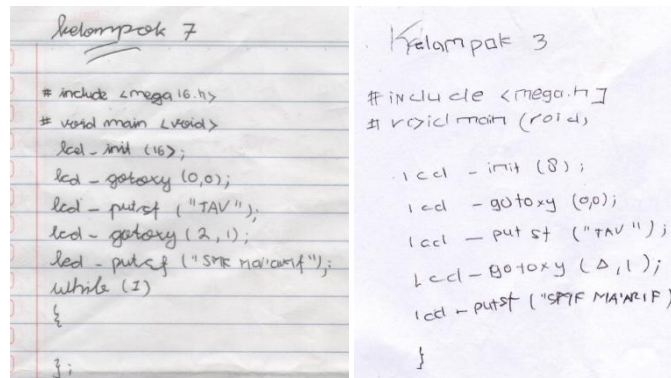 kelompok 7
# include <mega16.h>
# void main <void>
lcd - init (16>;
lcd - gotoxy (0,0);
lcd - putsf ("TAV");
lcd - gotoxy (2,1);
lcd - putsf ("SMK Ma'arif");
while (1)
{
};
Kelompok 3
# include <mega.h]
# void main (roid,
lcd - init (8);
lcd - gotoxy (0,0);
lcd - put st ("TAV");
lcd - gotoxy (Δ,1);
lcd - putsf ("SMF MA'ARIF)
}